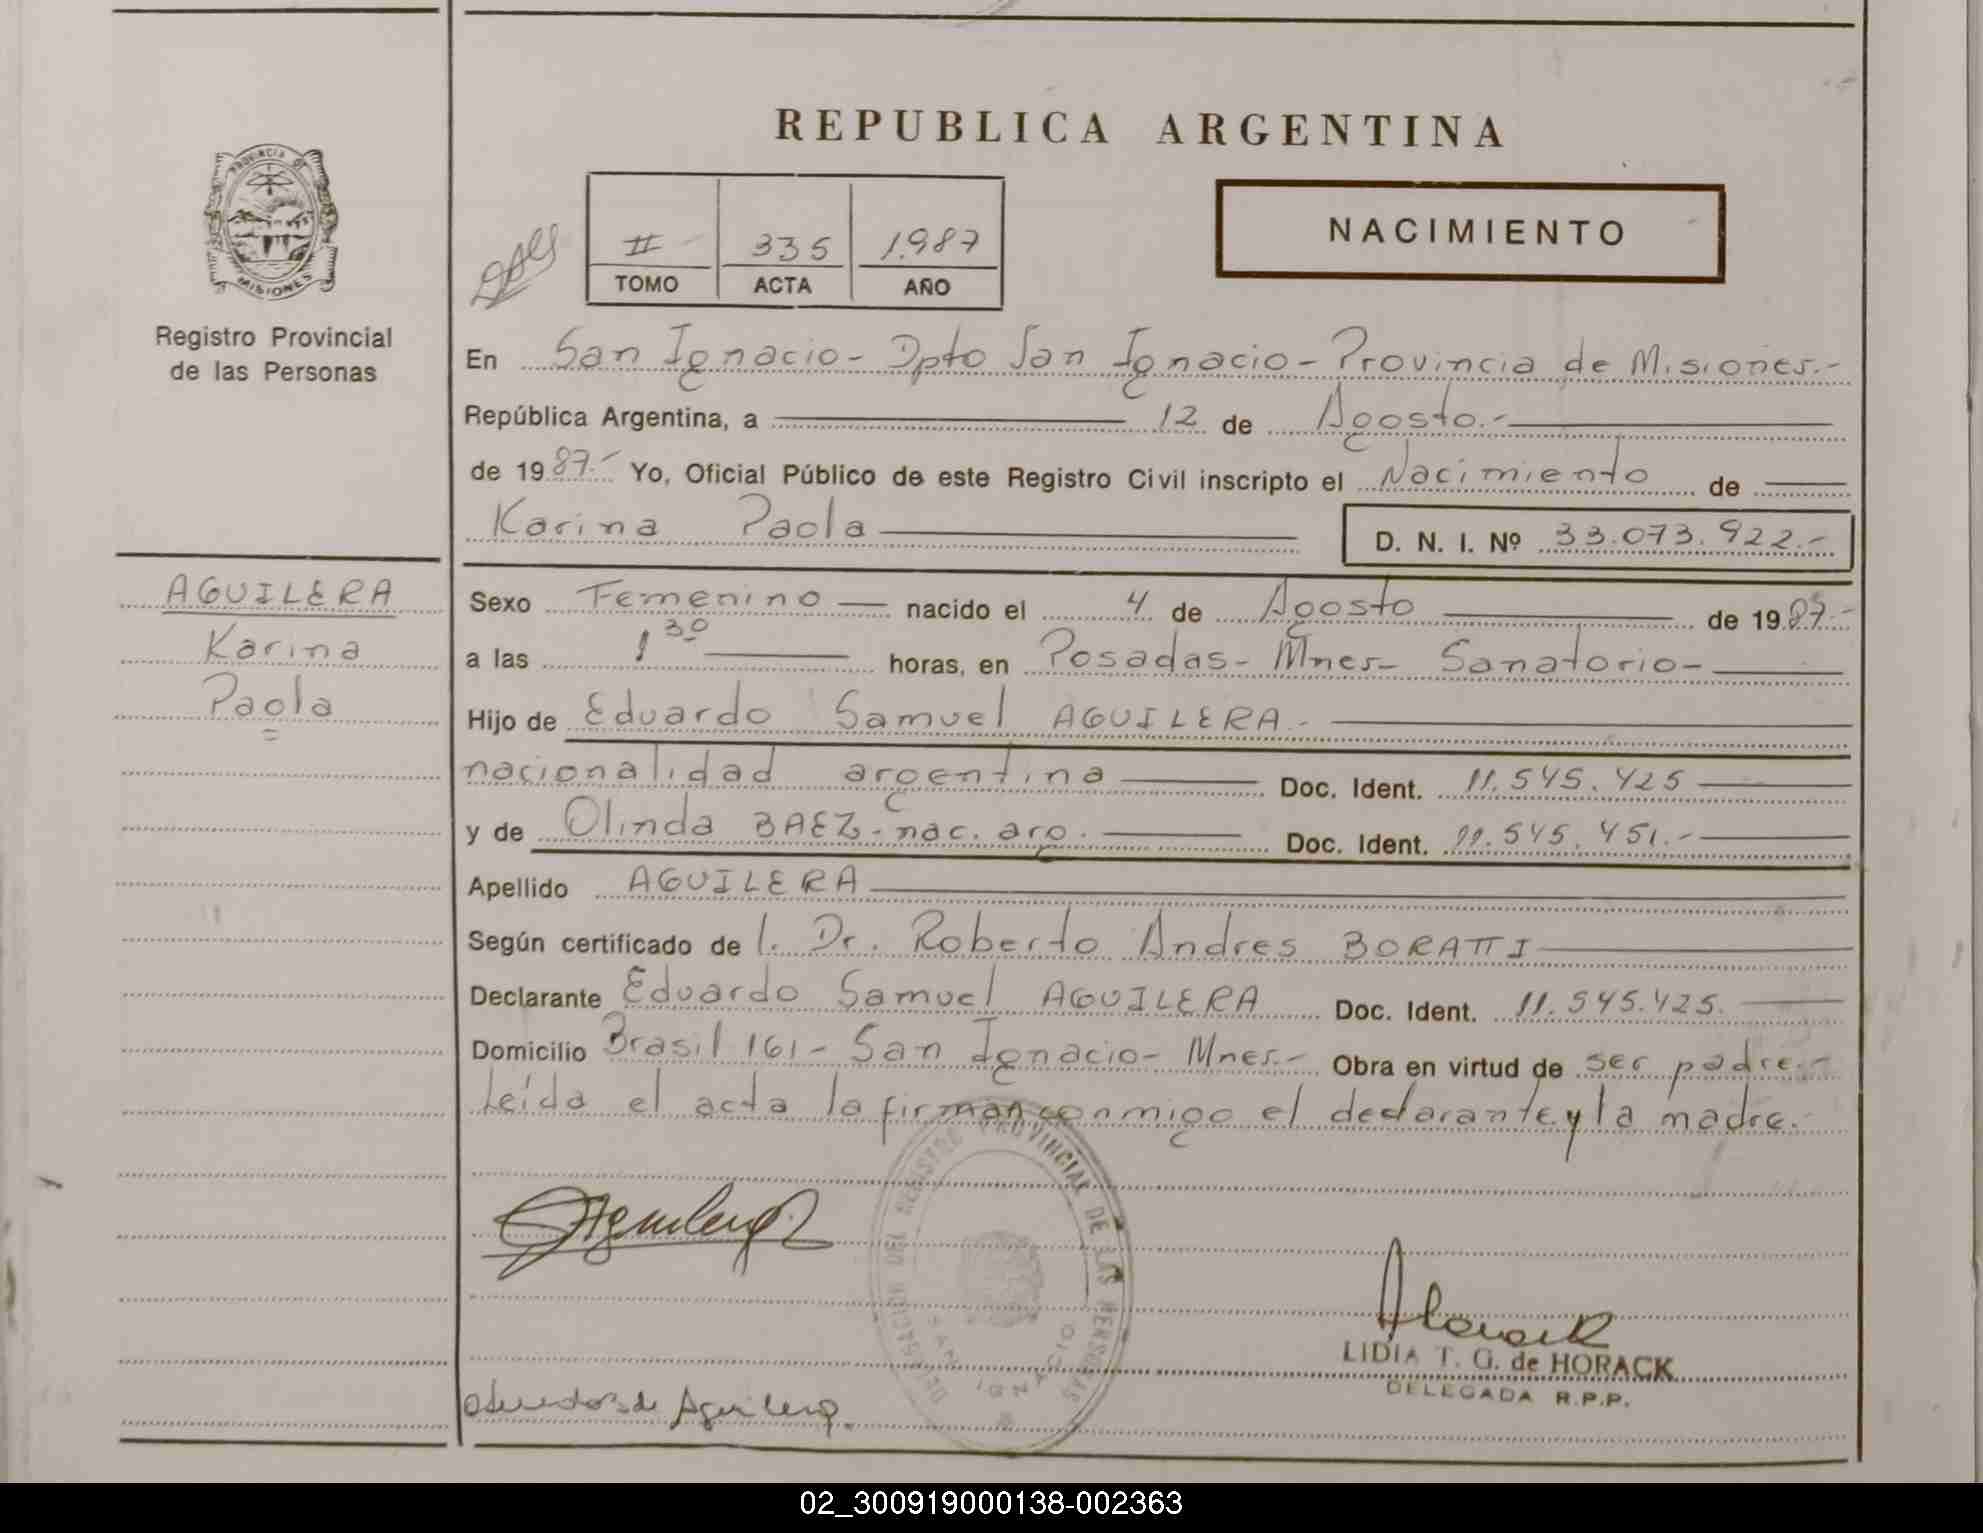 REPUBLICA ARGENTINA
PROVINCIA DE
MISIONES
Registro Provincial
de las Personas
II 335 1.987
TOMO ACTA AÑO
NACIMIENTO
En San Ignacio - Dpto San Ignacio - Provincia de Misiones.-
República Argentina, a 12 de Agosto.-
de 1987.- Yo, Oficial Público de este Registro Civil inscripto el Nacimiento de
Karina Paola D. N. I. Nº 33.073.922.-
AGUILERA
Karina
Paola
Sexo Femenino nacido el 4 de Agosto de 1987.-
a las 1 30 horas, en Posadas - Mnes - Sanatorio -
Hijo de Eduardo Samuel AGUILERA.-
nacionalidad argentina Doc. Ident. 11.545.425
y de Olinda BAEZ - nac. arg. Doc. Ident. 11.545.451.-
Apellido AGUILERA
Según certificado de l. Dr. Roberto Andres BORATTI
Declarante Eduardo Samuel AGUILERA Doc. Ident. 11.545.425.
Domicilio Brasil 161 - San Ignacio - Mnes.- Obra en virtud de ser padre.-
Leída el acta la firman conmigo el declarante y la madre.-
DELEGACION DEL REGISTRO PROVINCIAL DE LAS PERSONAS
SAN IGNACIO
Aguilera
Horack
LIDIA T. G. de HORACK
DELEGADA R.P.P.
de Aguilera.
02_300919000138-002363